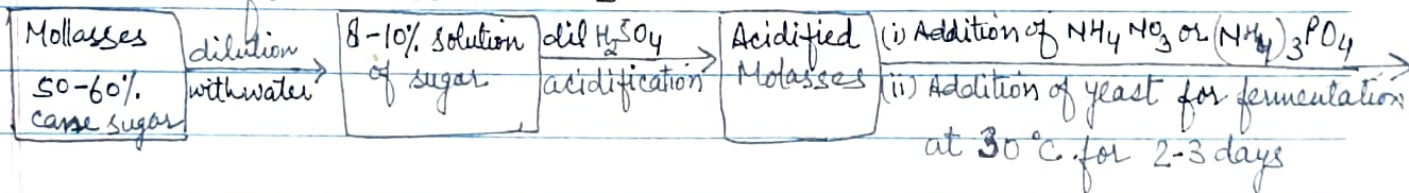 Mollasses
50-60%.
cane sugar
dilution
with water
8-10% solution
of sugar
dil H2SO4
acidification
Acidified
Molasses
(i) Addition of NH4 NO3 or (NH4)3PO4
(ii) Addition of yeast for fermentation
at 30°C. for 2-3 days